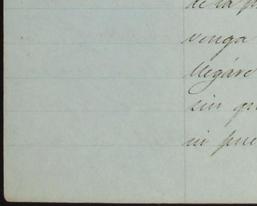 de la p
venga
llegáre
sin qu
ni pue